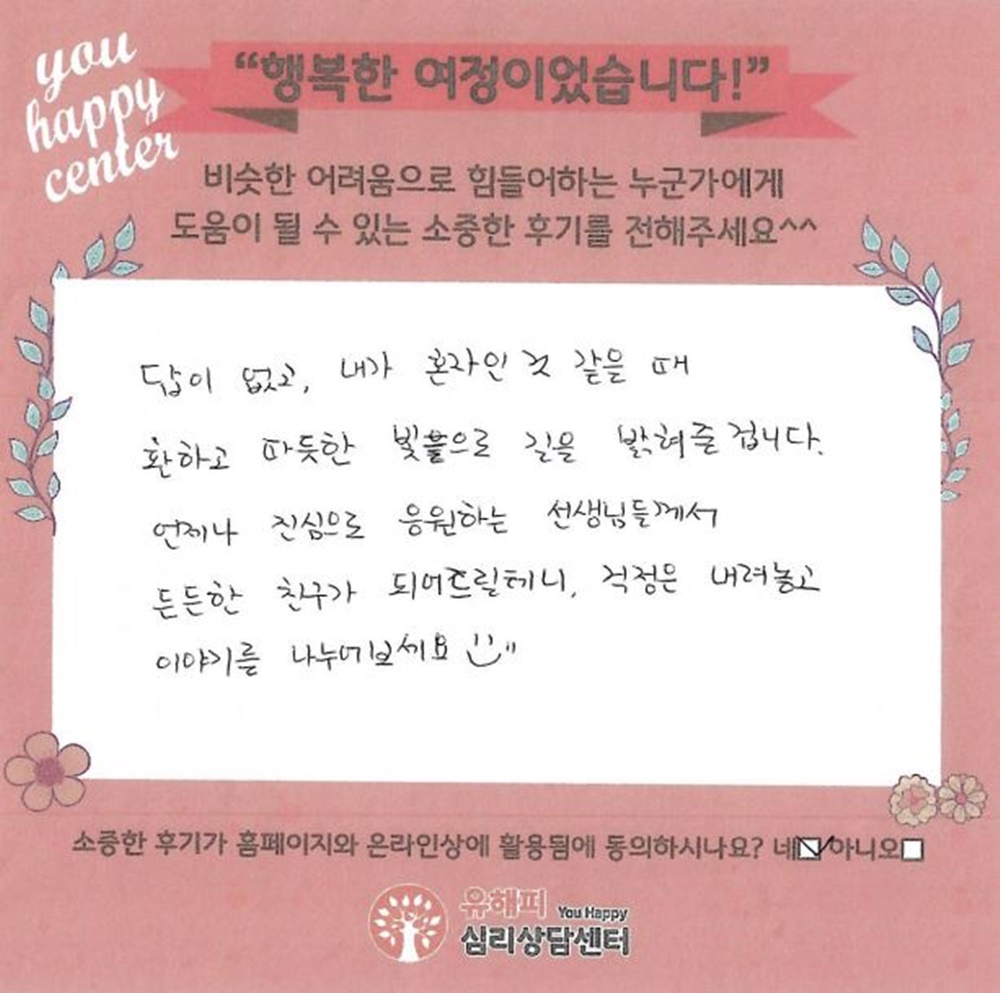 you
happy
center
“행복한 여정이었습니다!”
비슷한 어려움으로 힘들어하는 누군가에게
도움이 될 수 있는 소중한 후기를 전해주세요^^
답이 없고, 내가 혼자인 것 같을 때
환하고 따듯한 빛으로 길을 밝혀줄겁니다.
언제나 진심으로 응원하는 선생님들께서
든든한 친구가 되어드릴테니, 걱정은 내려놓고
이야기를 나누어보세요
소중한 후기가 홈페이지와 온라인상에 활용됨에 동의하시나요? 네 아니오
유해피 You Happy
심리상담센터